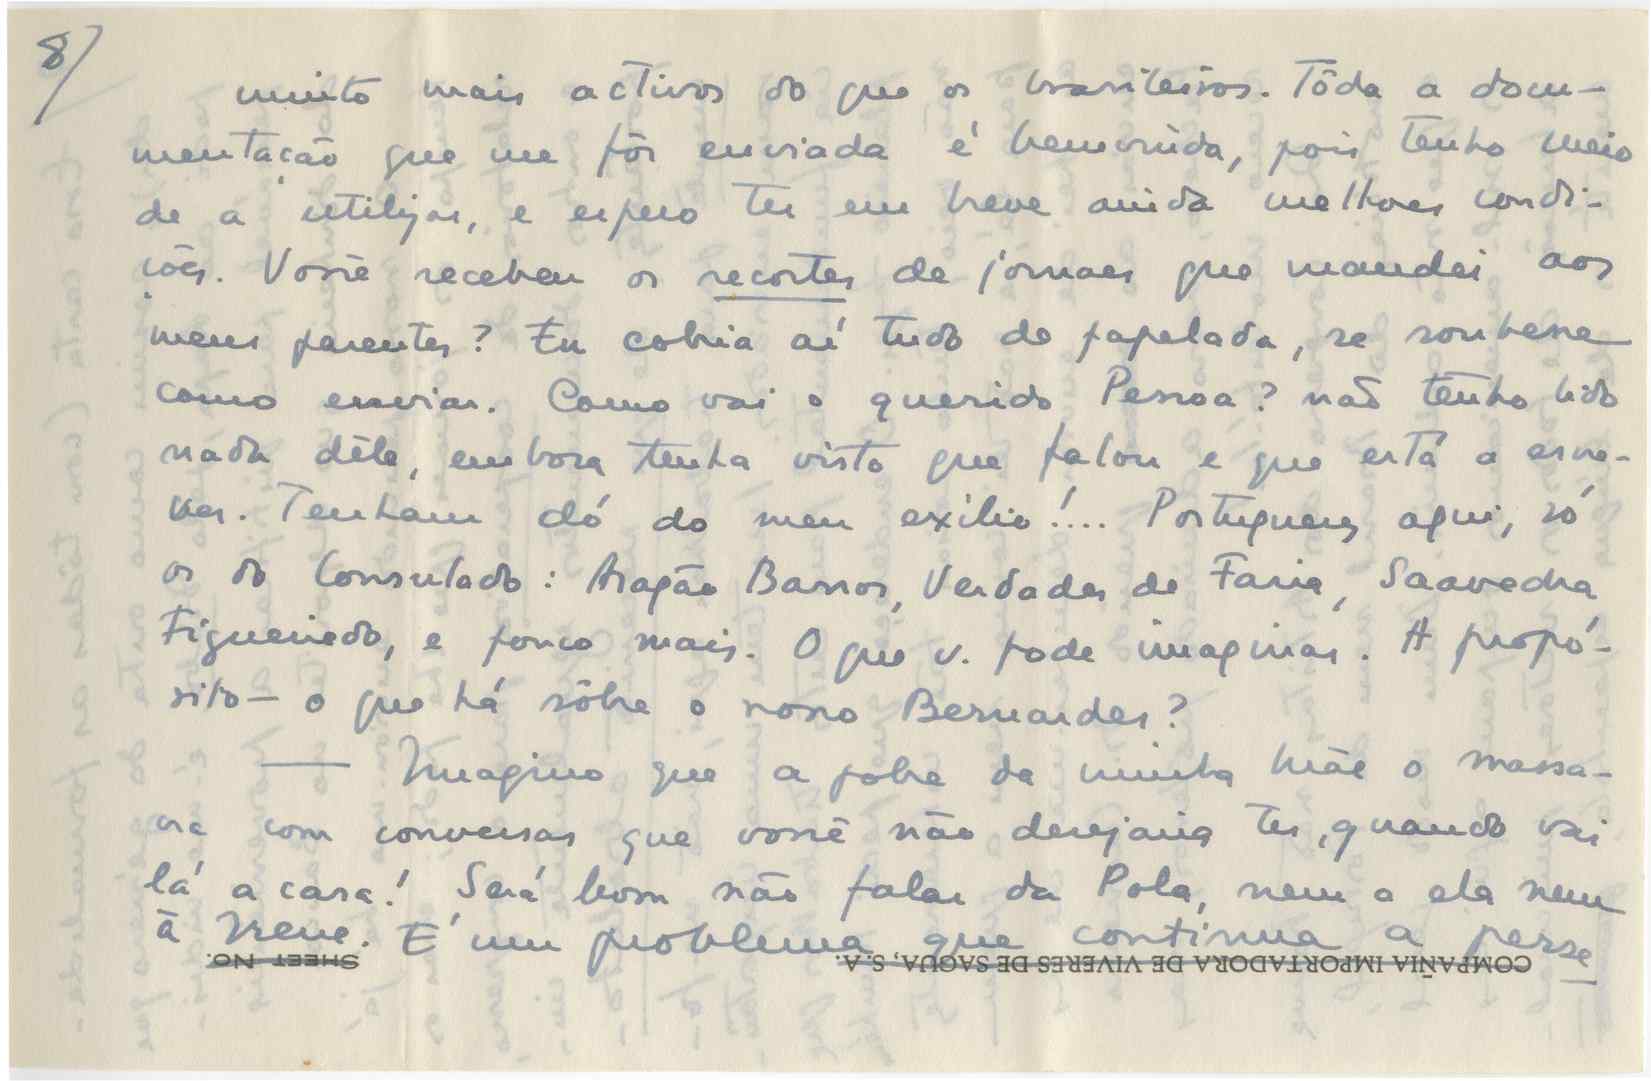 8/
muito mais activos do que os brasileiros. Tôda a docu-
mentação que me fôr enviada é bemvinda, pois tenho meio
de a utilizar, e espero ter em breve ainda melhores condi-
ções. Vossê recebeu os recortes de jornaes que mandei aos
meus parentes? Eu cobria aí tudo de papelada, se soubesse
como enviar. Como vai o querido Pessoa? não tenho lido
nada dêle, embora tenha visto que falou e que está a escre-
ver. Tenham dó do meu exílio!... Portugueses aqui, só
os do Consulado: Aragão Barros, Verdades de Faria, Saavedra
Figueiredo, e pouco mais. O que v. pode imaginar. A propó-
sito — o que há sôbre o nosso Bernardes?
— Imagino que a pobre da minha Mãe o massa-
cra com conversas que vossê não desejaria ter, quando vai
lá a casa! Será bom não falar da Pola, nem a ela nem
à Irene. É um problema que continua a perse-
SHEET NO.
COMPAÑIA IMPORTADORA DE VIVERES DE SAGUA, S. A.